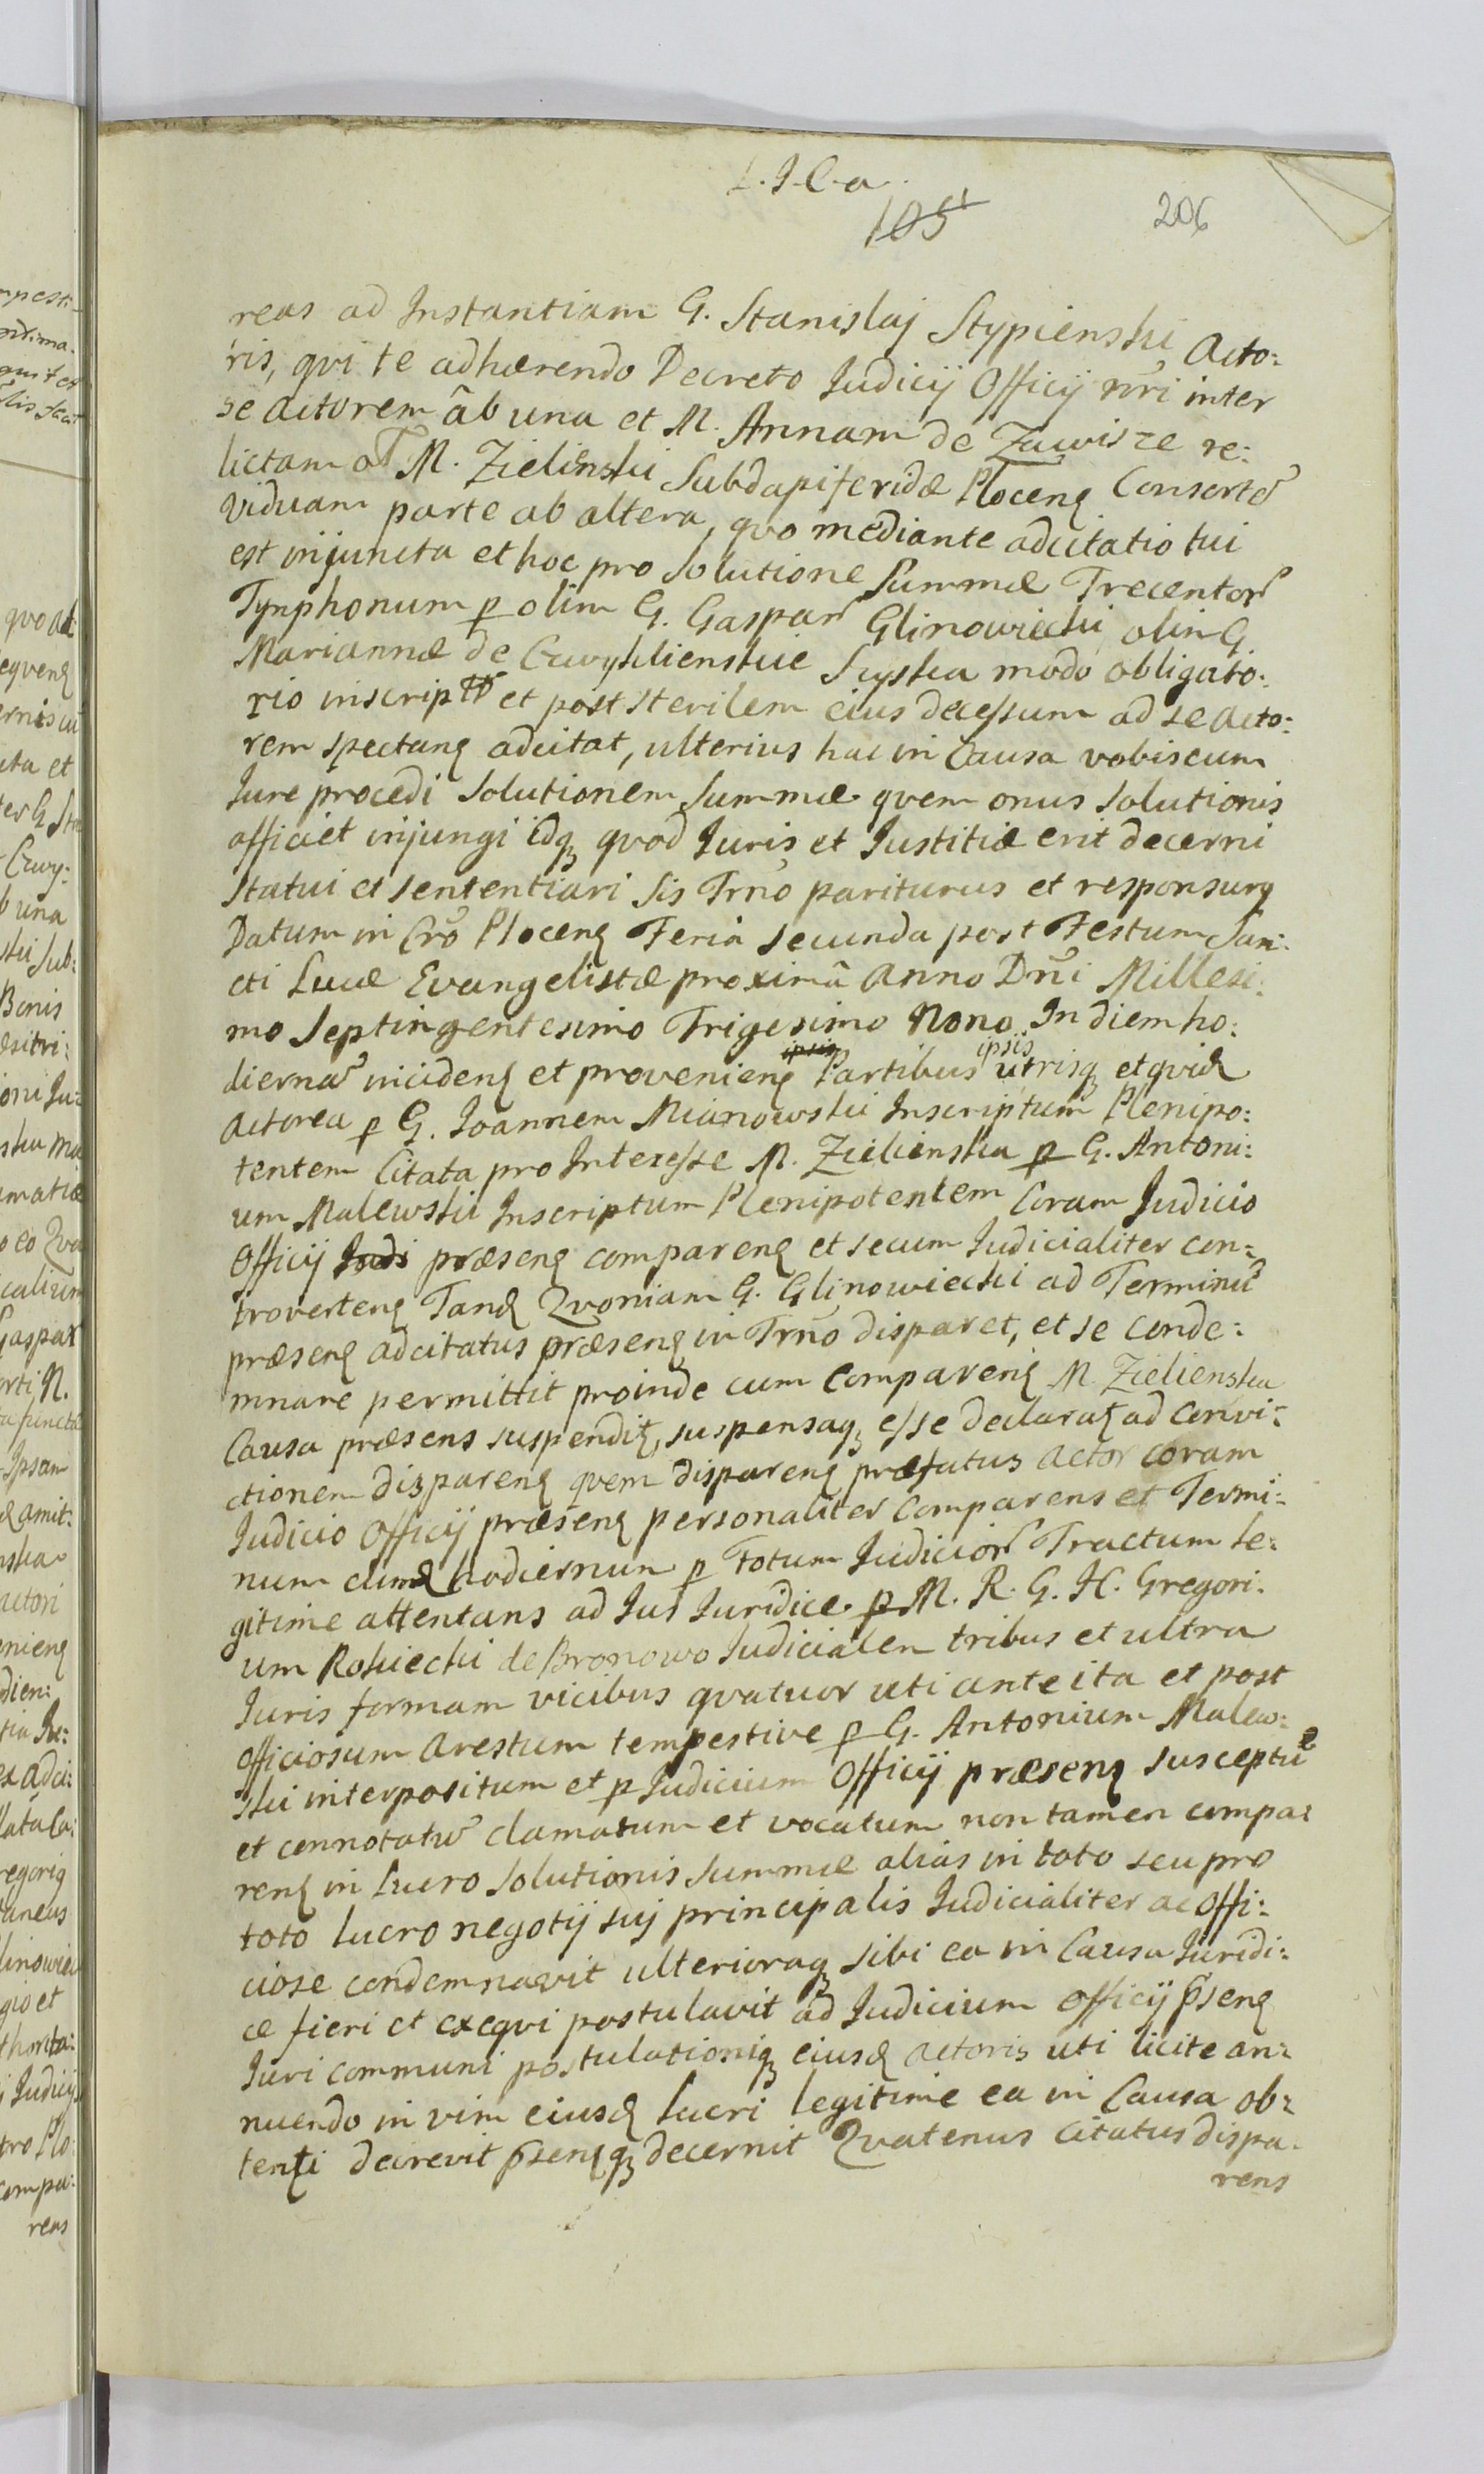 L. J. C. a.
105
206
reas ad Instantiam G. Stanislaj Stypienski Acto:
ris, qvi te adhærendo Decreto Judicij Officij nr̃i inter
se Actorem ab una et M. Annam de Zawisze re:
lictam M. Zielinski Subdapiferidæ Plocenꝫ Consortẽ
Viduam parte ab altera, qvo mediante adcitatio tui
est injuncta et hoc pro Solutione Summæ Trecentor̃
Tynphonum ꝑ olim G. Gaspar̃ Glinowiecki olim G
Mariannæ de Cwyklienskie Łyska modo obligato:
rio inscript et post sterilem eius decessum ad se Acto:
rem spectanꝫ adcitat, ulterius hac in Causa vobiscum
Jure procedi Solutionem Summæ qvem onus solutionis
afficiet injungi idqꝫ qvod Juris et Justitiæ erit decerni
statui et sententiari Sis Trño pariturus et responsurꝰ
Datum in Crõ Plocenꝫ Feria secunda post Festum San:
cti Lucæ Evangelistæ proximã Anno Dñi Millesi:
mo Septingentesimo Trigesimo Nono. In diem ho:
diernã incidenꝫ et provenienꝫ Partibus ipsis utrisqꝫ et qvidꝫ
Actorea ꝑ G. Joannem Mianowski Inscriptum Plenipo:
tentem Citata pro Interesse M. Zielienska ꝑ G. Antoni:
um Malewski Inscriptum Plenipotentem Coram Judicio
Officij præsenꝫ comparenꝫ et secum Judicialiter con:
trovertenꝫ Tandꝫ Qvoniam G. Glinowiecki ad Terminũ
præsenꝫ adcitatus præsenꝫ in Trño disparet, et se conde:
mnare permittit proinde cum Comparenꝫ M. Zielienska
Causa præsens suspenditꝫ, suspensaqꝫ esse declaratꝫ ad convi:
ctionem disparenꝫ qvem disparenꝫ præfatus Actor coram
Judicio Officij præsenꝫ personaliter Comparens et Termi:
num hodiernum ꝑ Totum Judicior̃ Tractum le:
gitime attentans ad Jus Juridice ꝑ M. R. G. H. Gregori:
um Rokiecki de Bronowo Judicialem tribus et ultra
Juris formam vicibus qvatuor uti ante ita et post
Officiosum Arestum tempestive ꝑ G. Antonium Malew:
ski interpositum et ꝑ Judicium Officij præsenꝫ susceptũ
et connotatũ clamatum et vocatum non tamen compa:
renꝫ in Lucro Solutionis Summæ alias in toto seu pro
toto lucro negotij suj principalis Judicialiter ac Offi:
ciose condemnavit ulterioraqꝫ sibi ea in Causa Juridi:
ce fieri et exeqvi postulavit ad Judicium Officij p̃senꝫ
Juri communi postulationiqꝫ eiusdꝫ Actoris uti licite an:
nuendo in vim eiusdꝫ Lucri legitime ea in Causa ob:
tenti decrevit p̃senꝫqꝫ decernit Qvatenus Citatus dispa:
rens